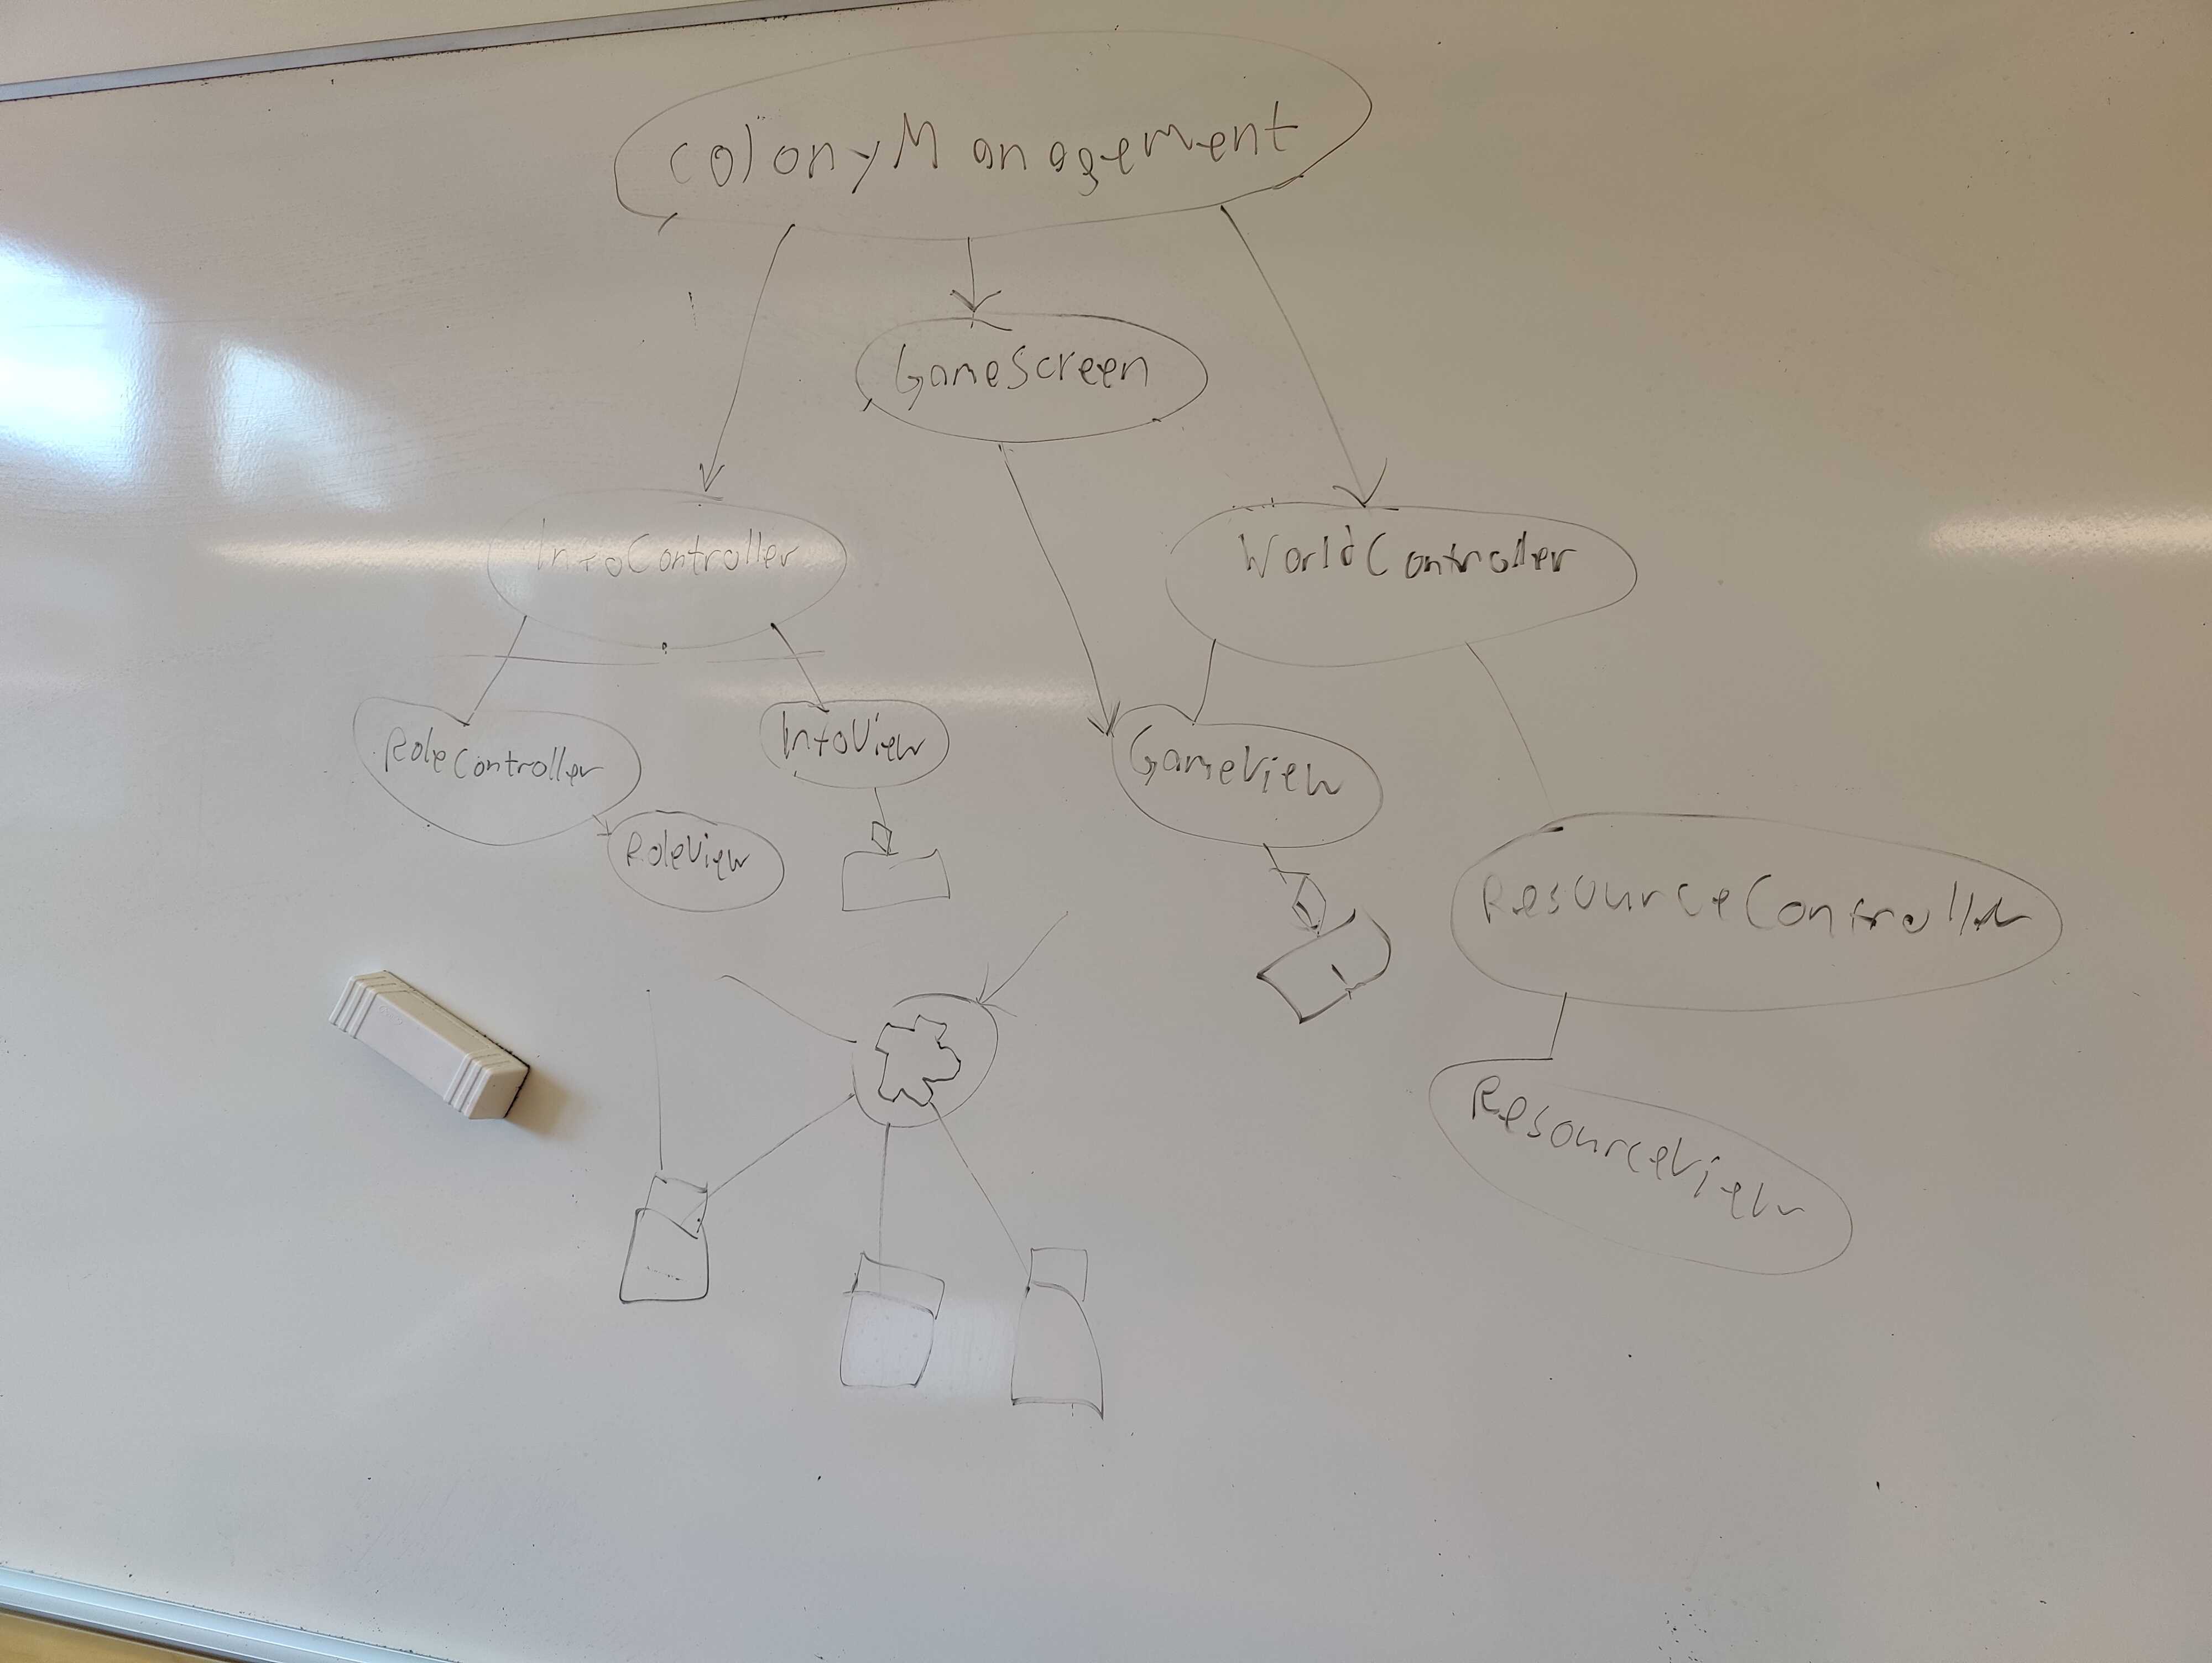 ColonyManagement
GameScreen
InfoController
WorldController
RoleController
InfoView
GameView
RoleView
ResourceController
ResourceView